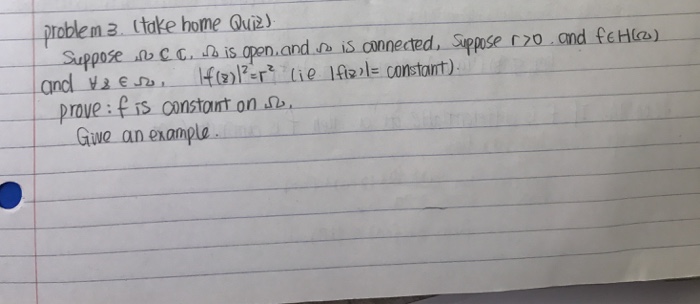 problem 3. (take home Quiz)
Suppose Ω ⊂ ℂ, Ω is open, and Ω is connected, Suppose r>0. and f∈H(Ω)
and ∀z ∈ Ω, |f(z)|²=r² (ie |f(z)|= constant).
prove: f is constant on Ω.
Give an example.